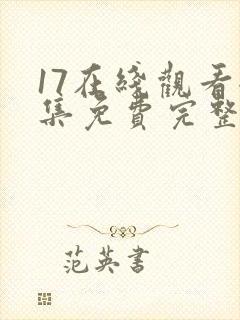 17在綫觀看
集免費完整
范英書